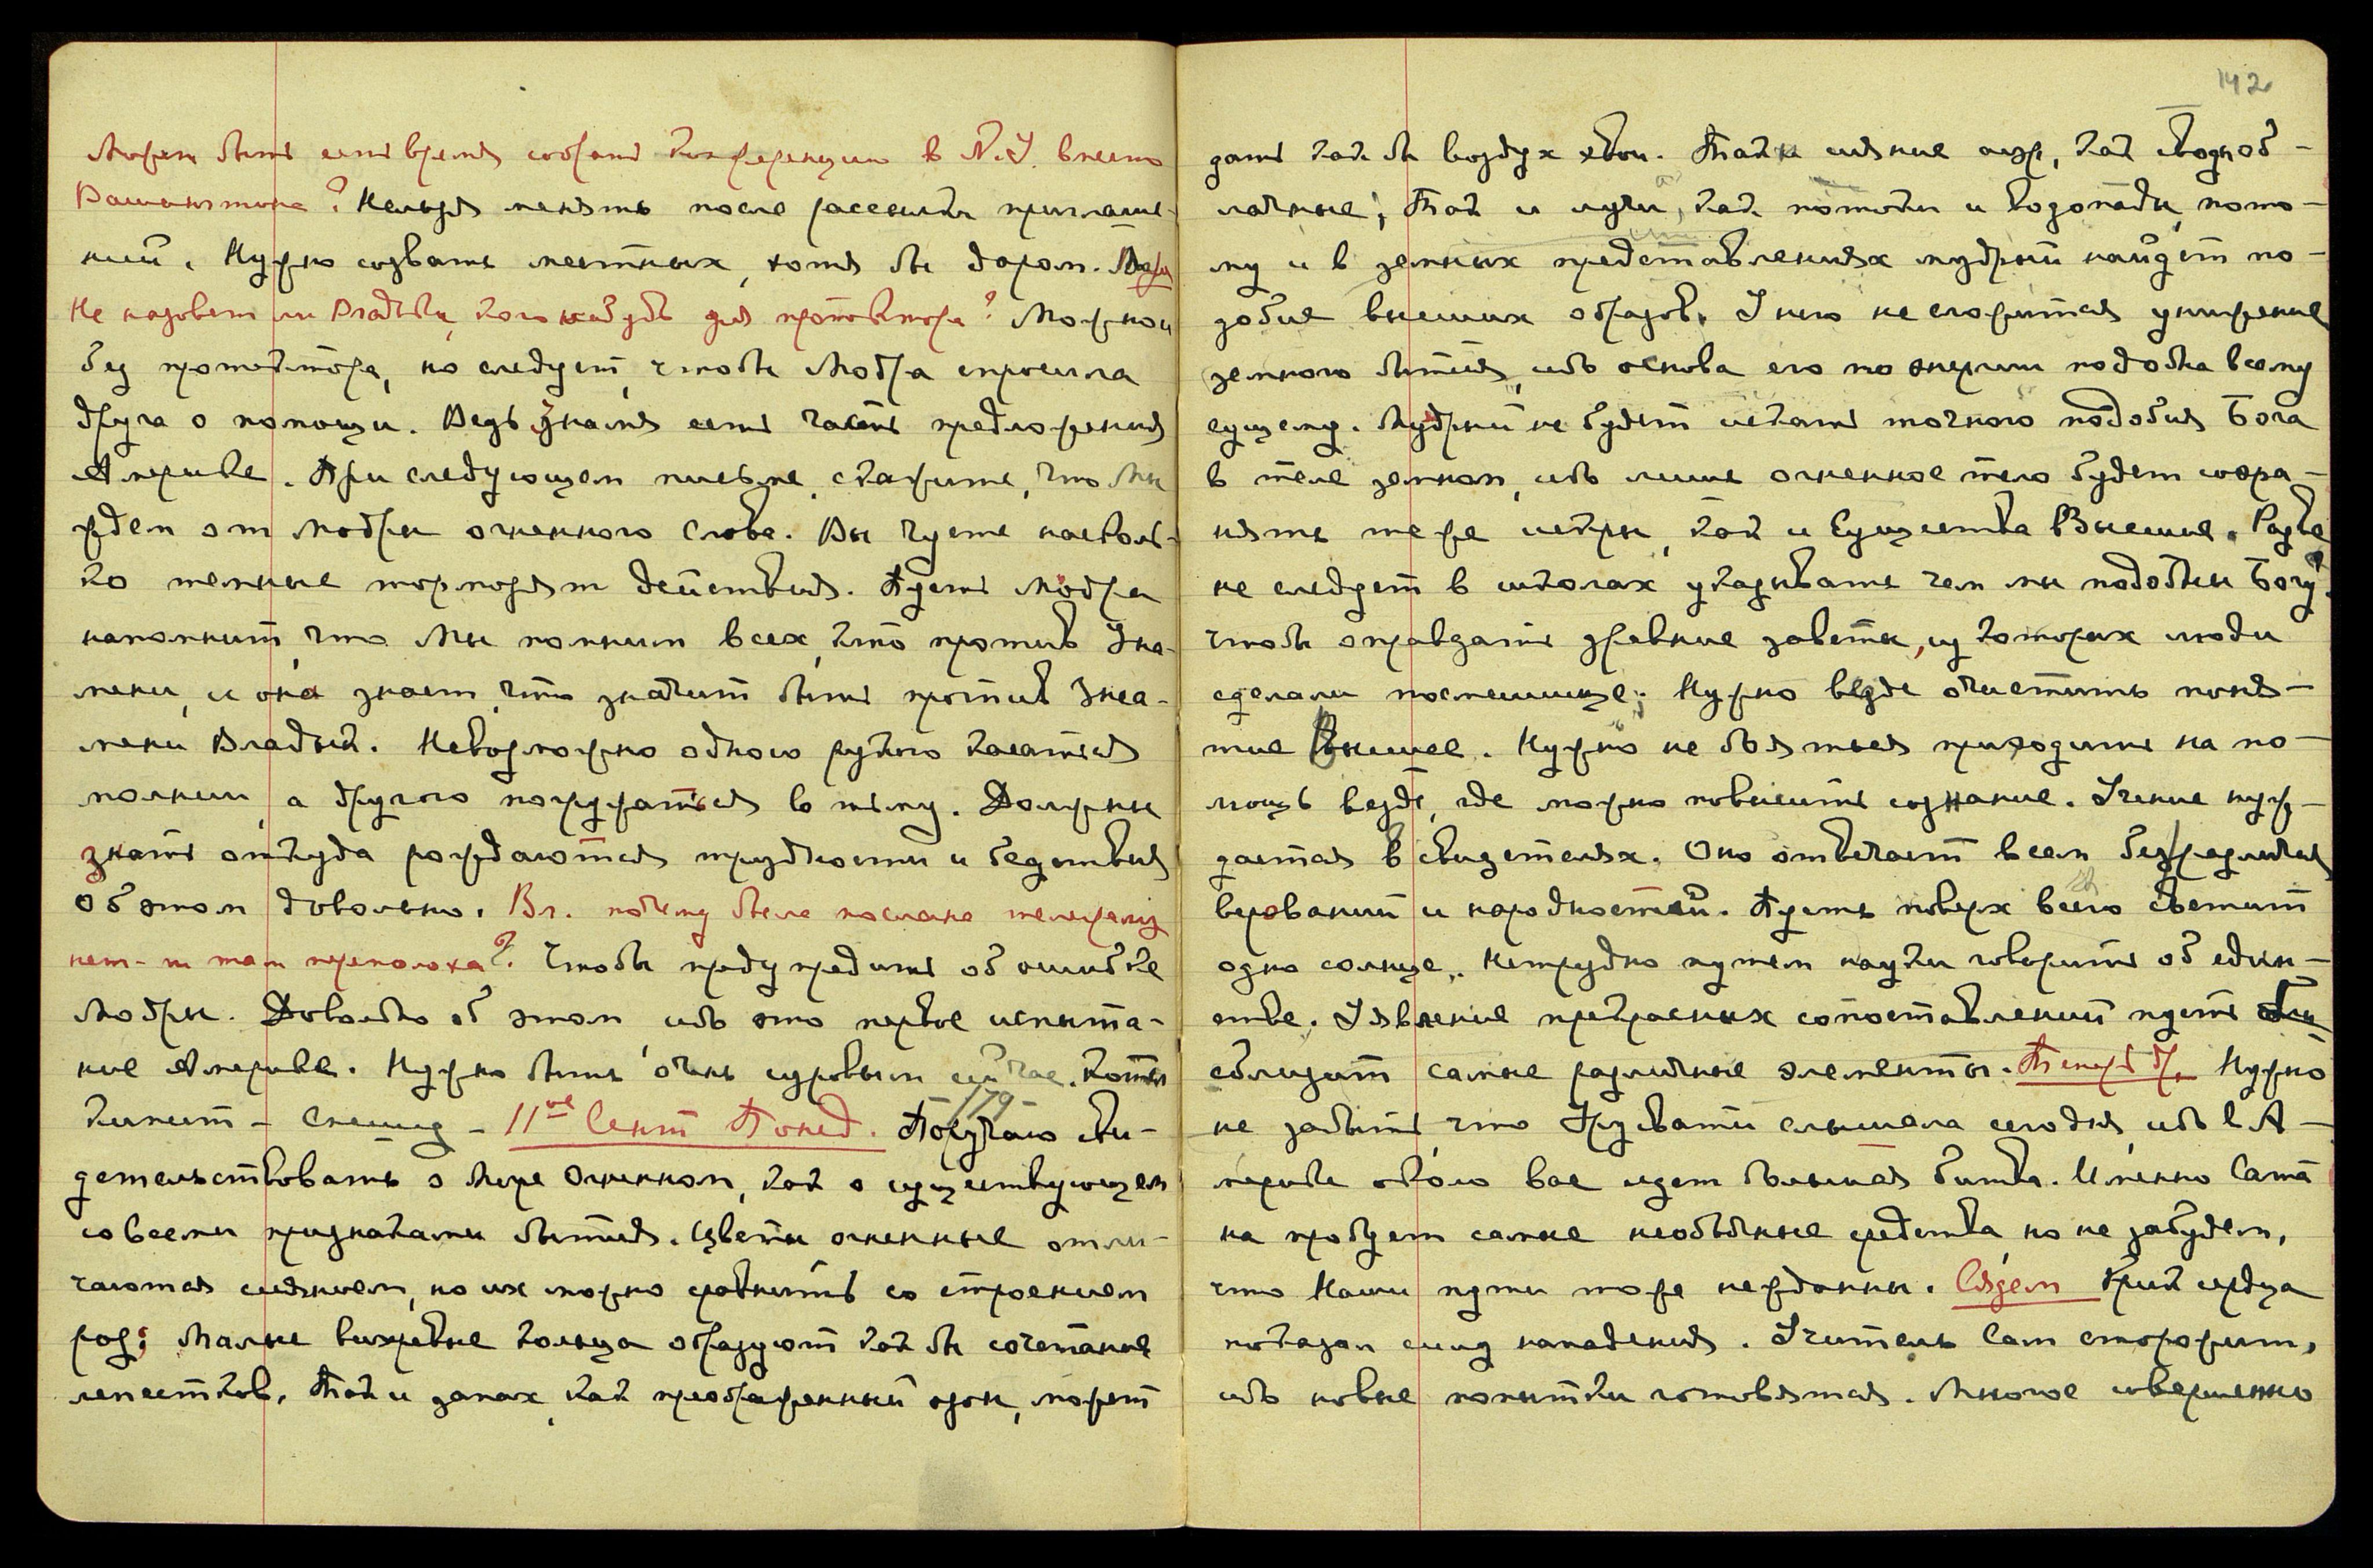 142
Может быть есть время собрать конференцию в N.Y. вместо
Вашингтона? Нельзя менять после рассылки приглаше-
ний. Нужно созвать местных, хотя бы даром.
Не назовет ли Владыка кого нибудь для протектора? Можно и
без протектора, но следует, чтобы Модра спросила
друга о помощи. Ведь Знамя есть часть предложения
Америке. При следующем письме, скажите, что Мы
ждем от Модры огненного слова. Вы чуете насколь-
ко темные тормозят действия. Пусть Модра
напомнит, что Мы помним всех, кто против Зна-
мени, и она знает, что значит быть против Зна-
мени Владык. Невозможно одного рукою касаться
молнии, а другою погружаться в тьму. Должны
знать откуда рождаются трудности и бедствия
об этом довольно. Вл. почему была послана телеграмма
нет-ли там переполоха? Чтобы предупредить об ошибке
Модры. Довольно об этом, ибо это первое испыта-
ние Америке. Нужно быть очень суровым сейчас. Котел
кипит – Спешу – 11ое Сент Понед. Поручаю сви-
179
детельствовать о Мире Огненном, как о существующем
со всеми признаками бытия. Цветы огненные отли-
чаются сиянием, но их можно сравнить со строением
роз; Малые вихревые кольца образуют как бы сочетание
лепестков. Так и запах, как преображенный озон, может
дать как бы воздух хвои. Так и сияние аур, как сводноб-
лачные; Так и лучи, как потоки и водопады, пото-
му и в земных представлениях мудрый найдет по-
добие высших образов. У него не сложится унижение
земного бытия, ибо основа его по энергии подобна всему
сущему. Мудрый не будет искать точного подобия Бога
в теле земном, ибо лишь огненное тело будет сохра-
нять те же искры, как и Существа Высшие. Разве
не следует в школах указывать чем мы подобны Богу?
чтобы оправдать древние заветы, из которых люди
сделали посмешище; Нужно везде очистить поня-
тие Высшее. Нужно не бояться приходить на по-
мощь везде, где можно повысить сознание. Учение нуж-
дается в свидетелях. Оно отвечает всем без различия
верований и народностей. Пусть поверх всего светит
одно солнце. Нетрудно путем науки говорить об един-
стве. Изявление прекрасных сопоставлений пусть
сблизит самые различные элементы. Теперь др. Нужно
не забыть, что Урусвати слышала сегодня, ибо в А-
мерике около вас идет большая битва. Именно Сата
на пробует самые необычные средства, но не забудем,
что Наши пути тоже нежданны. Сядем Крик сердца
показал силу нападения. Учитель Сам сторожит,
ибо новые попытки готовятся. Многое совершенно